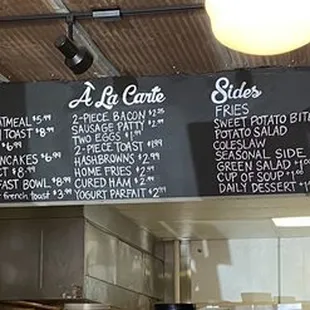 À La Carte
2-PIECE BACON $2.35
SAUSAGE PATTY $2.99
TWO EGGS $1.99
2-PIECE TOAST $1.99
HASHBROWNS $2.99
HOME FRIES $2.99
CURED HAM $2.99
YOGURT PARFAIT $2.99
Sides
FRIES
SWEET POTATO BITE
POTATO SALAD
COLESLAW
SEASONAL SIDE
GREEN SALAD $1.00
CUP OF SOUP $1.00
DAILY DESSERT $1.00
OATMEAL $5.99
TOAST $8.99
$6.99
PANCAKES $6.99
$8.99
FAST BOWL $8.99
french toast $3.99